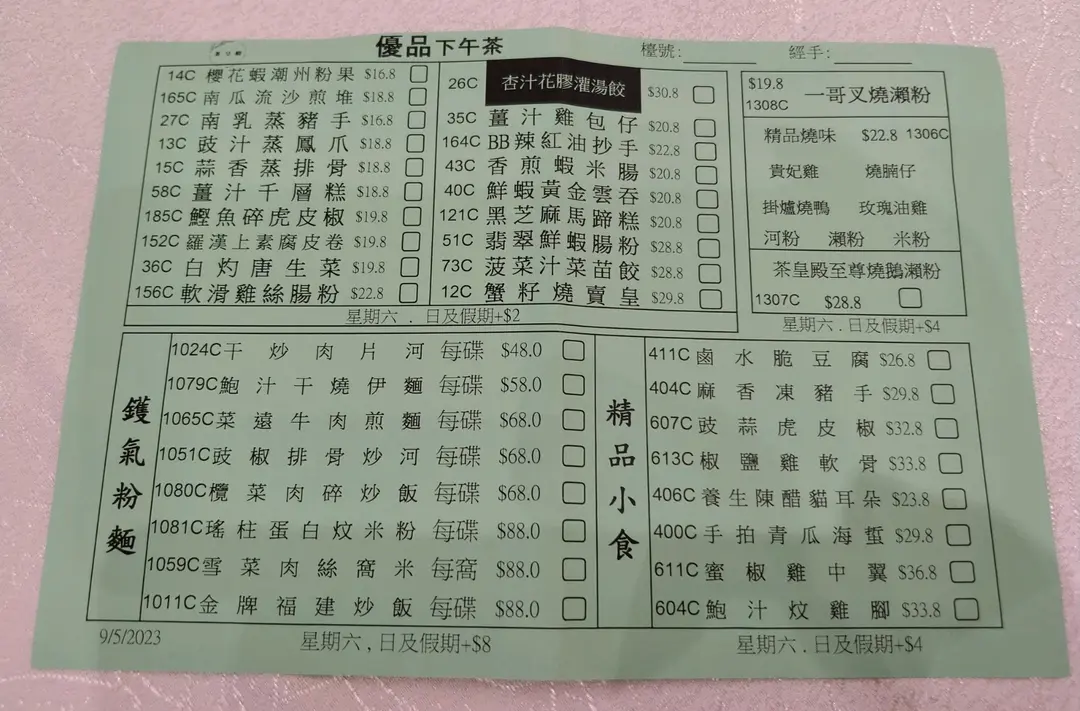 優品下午茶
檯號:
經手:
14C 櫻花蝦潮州粉果 $16.8
165C 南瓜流沙煎堆 $18.8
27C 南乳蒸豬手 $16.8
13C 豉汁蒸鳳爪 $18.8
15C 蒜香蒸排骨 $18.8
58C 薑汁千層糕 $18.8
185C 鰹魚碎虎皮椒 $19.8
152C 羅漢上素腐皮卷 $19.8
36C 白灼唐生菜 $19.8
156C 軟滑雞絲腸粉 $22.8
26C 杏汁花膠灌湯餃 $30.8
35C 薑汁雞包仔 $20.8
164C BB辣紅油抄手 $22.8
43C 香煎蝦米腸 $20.8
40C 鮮蝦黃金雲吞 $20.8
121C 黑芝麻馬蹄糕 $20.8
51C 翡翠鮮蝦腸粉 $28.8
73C 菠菜汁菜苗餃 $28.8
12C 蟹籽燒賣皇 $29.8
星期六 . 日及假期+$2
$19.8
1308C 一哥叉燒瀨粉
精品燒味 $22.8 1306C
貴妃雞 燒腩仔
掛爐燒鴨 玫瑰油雞
河粉 瀨粉 米粉
茶皇殿至尊燒鵝瀨粉
1307C $28.8
星期六 . 日及假期+$4
鑊氣粉麵
1024C 干炒肉片河 每碟 $48.0
1079C 鮑汁干燒伊麵 每碟 $58.0
1065C 菜遠牛肉煎麵 每碟 $68.0
1051C 豉椒排骨炒河 每碟 $68.0
1080C 欖菜肉碎炒飯 每碟 $68.0
1081C 瑤柱蛋白炆米粉 每碟 $88.0
1059C 雪菜肉絲窩米 每窩 $88.0
1011C 金牌福建炒飯 每碟 $88.0
精品小食
411C 鹵水脆豆腐 $26.8
404C 麻香凍豬手 $29.8
607C 豉蒜虎皮椒 $32.8
613C 椒鹽雞軟骨 $33.8
406C 養生陳醋貓耳朵 $23.8
400C 手拍青瓜海蜇 $29.8
611C 蜜椒雞中翼 $36.8
604C 鮑汁炆雞腳 $33.8
9/5/2023
星期六 , 日及假期+$8
星期六 . 日及假期+$4